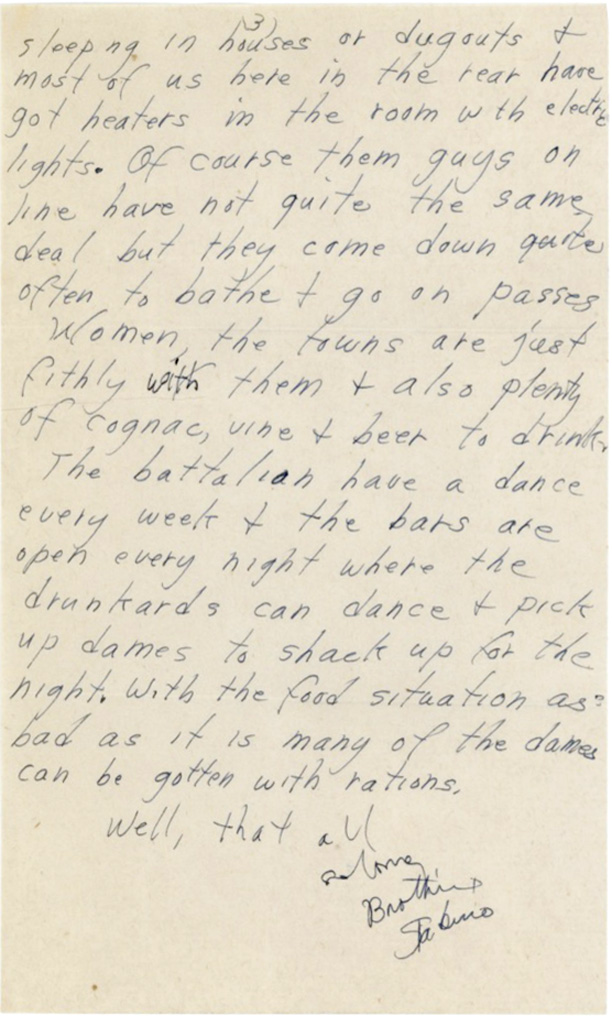 (3)
sleepng in houses or dugouts &
most of us here in the rear have
got heaters in the room w th electric
lights. Of course them guys on
line have not quite the same
deal but they come down quite
often to bathe & go on passes
Women, the towns are just
fithly with them & also plenty
of cognac, vine & beer to drink.
The battalian have a dance
every week & the bars are
open every night where the
drunkards can dance & pick
up dames to shack up for the
night. With the food situation as
bad as it is many of the dames
can be gotten with rations.
Well, that all
so long
Brother